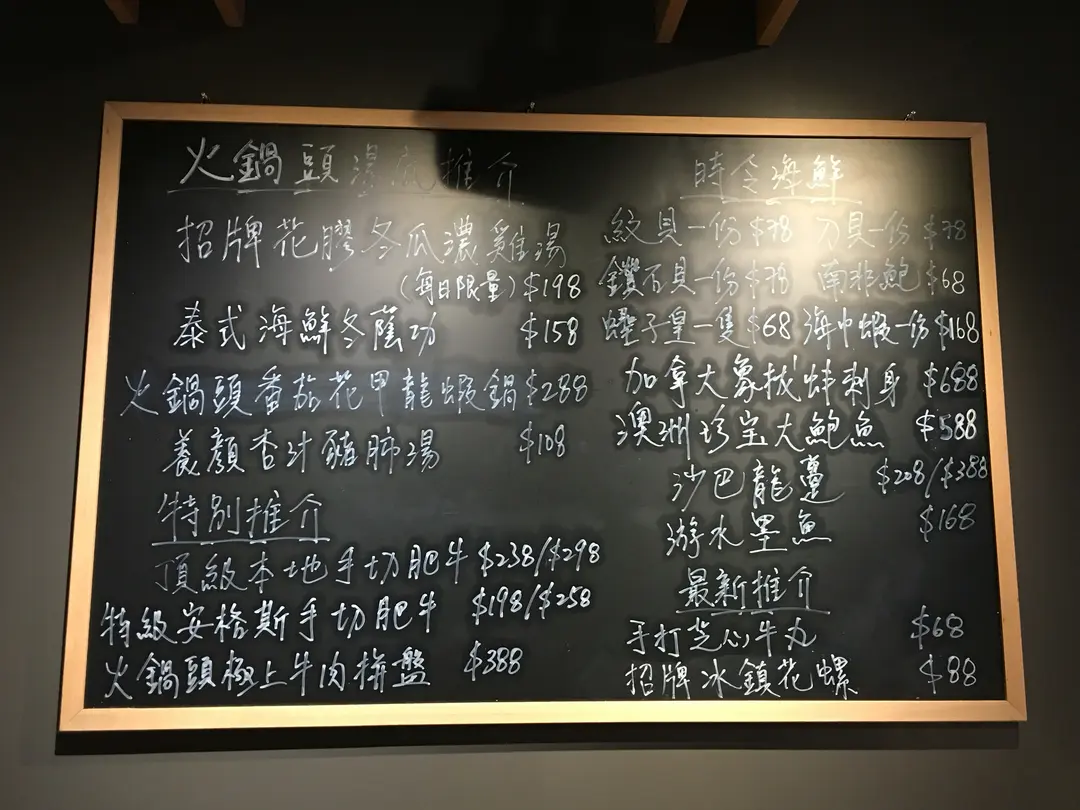 火鍋頭湯底推介
招牌花膠冬瓜濃雞湯
(每日限量) $198
泰式海鮮冬蔭功 $158
火鍋頭番茄花甲龍蝦鍋 $288
養顏杏汁豬肺湯 $108
特別推介
頂級本地手切肥牛 $238/$298
特級安格斯手切肥牛 $198/$258
火鍋頭極上牛肉拼盤 $388
時令海鮮
紋貝一份 $78 刀貝一份 $78
鑽石貝一份 $78 南非鮑 $68
蟶子皇一隻 $68 海中蝦一份 $168
加拿大象拔蚌刺身 $688
澳洲珍宝大鮑魚 $588
沙巴龍躉 $208/$388
游水墨魚 $168
最新推介
手打芝心牛丸 $68
招牌冰鎮花螺 $88